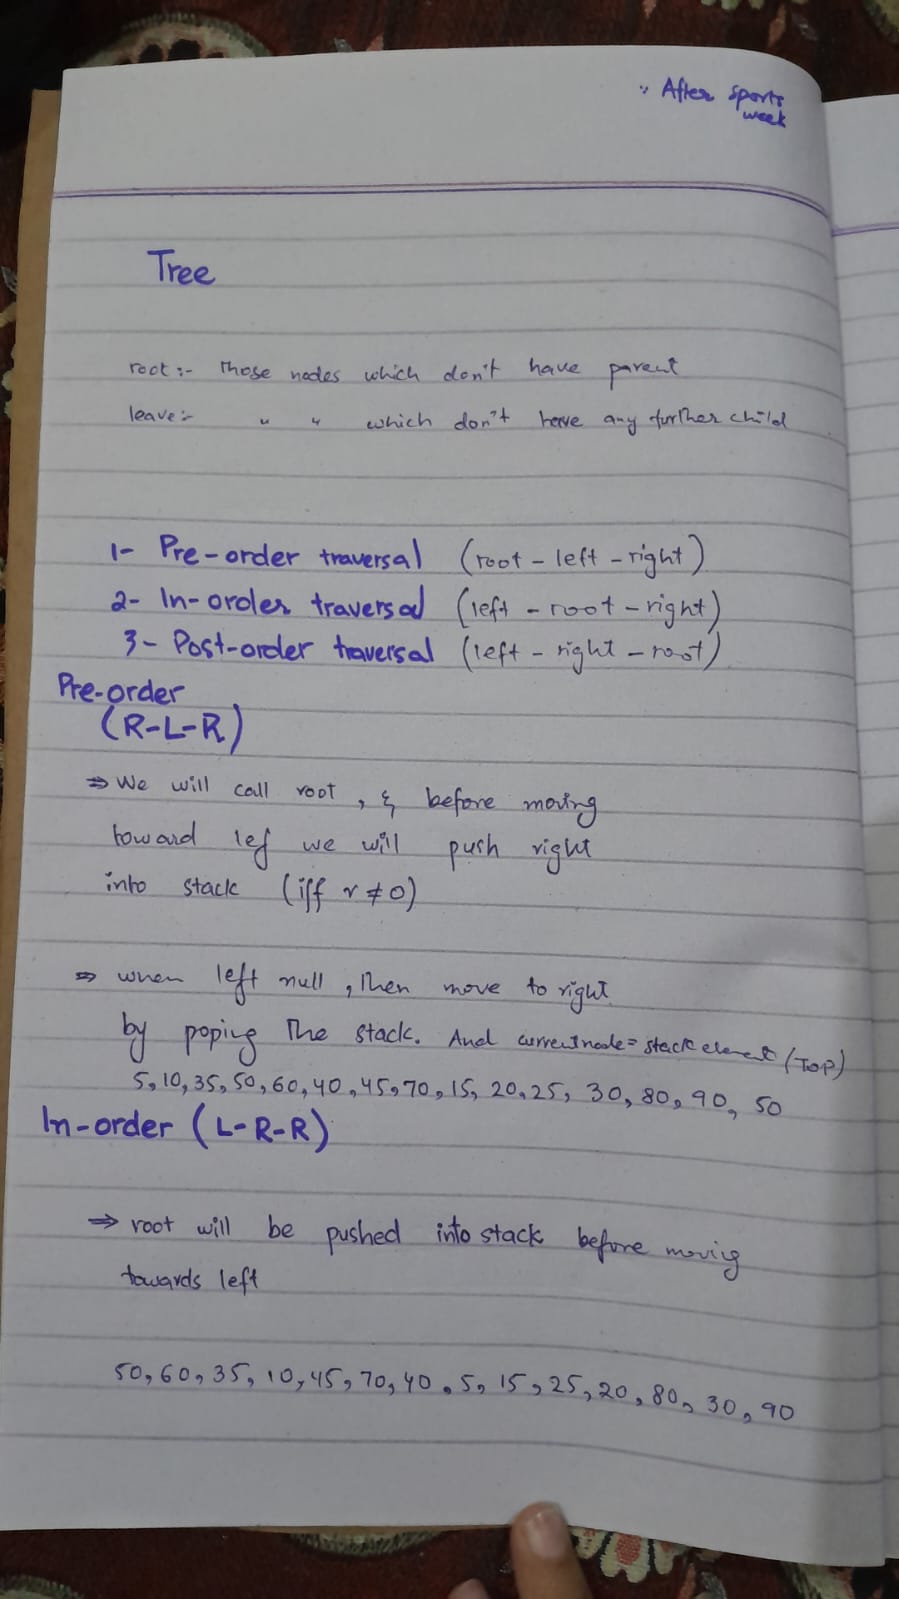 " After sports
week
Tree
root :- Those nodes which don't have parent
leave :- " " which don't have any further child
1- Pre-order traversal (root - left - right)
2- In-order traversal (left - root - right)
3- Post-order traversal (left - right - root)
Pre-order
(R-L-R)
⇒ We will call root, & before moving
toward lef we will push right
into stack (iff r ≠ 0)
⇒ when left null, then move to right
by poping The stack. And currentnode = stack element (TOP)
5, 10, 35, 50, 60, 40, 45, 70, 15, 20, 25, 30, 80, 90, 50
In-order (L-R-R)
⇒ root will be pushed into stack before moving
towards left
50, 60, 35, 10, 45, 70, 40, 5, 15, 25, 20, 80, 30, 90